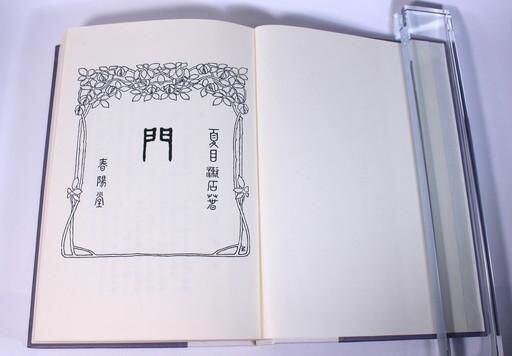 夏目漱石著
門
春陽堂